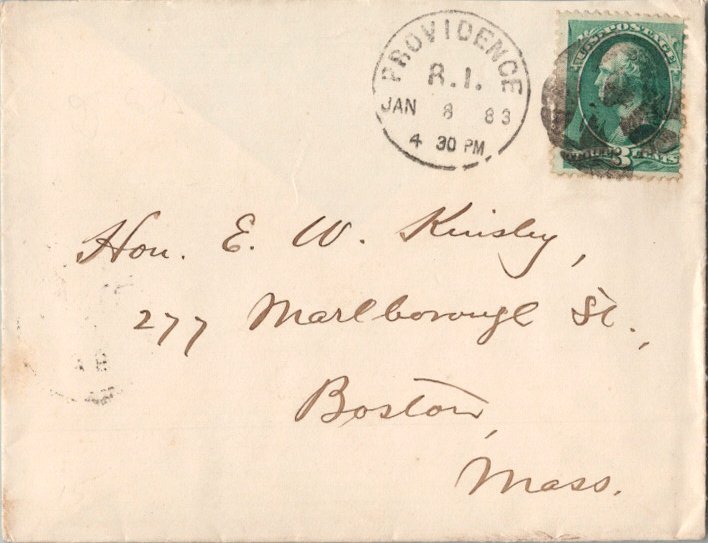 PROVIDENCE
R.I.
JAN 8 83
4 30 PM
U.S. POSTAGE
THREE 3 CENTS
Hon. E. W. Kinsley,
277 Marlborough St.,
Boston,
Mass.